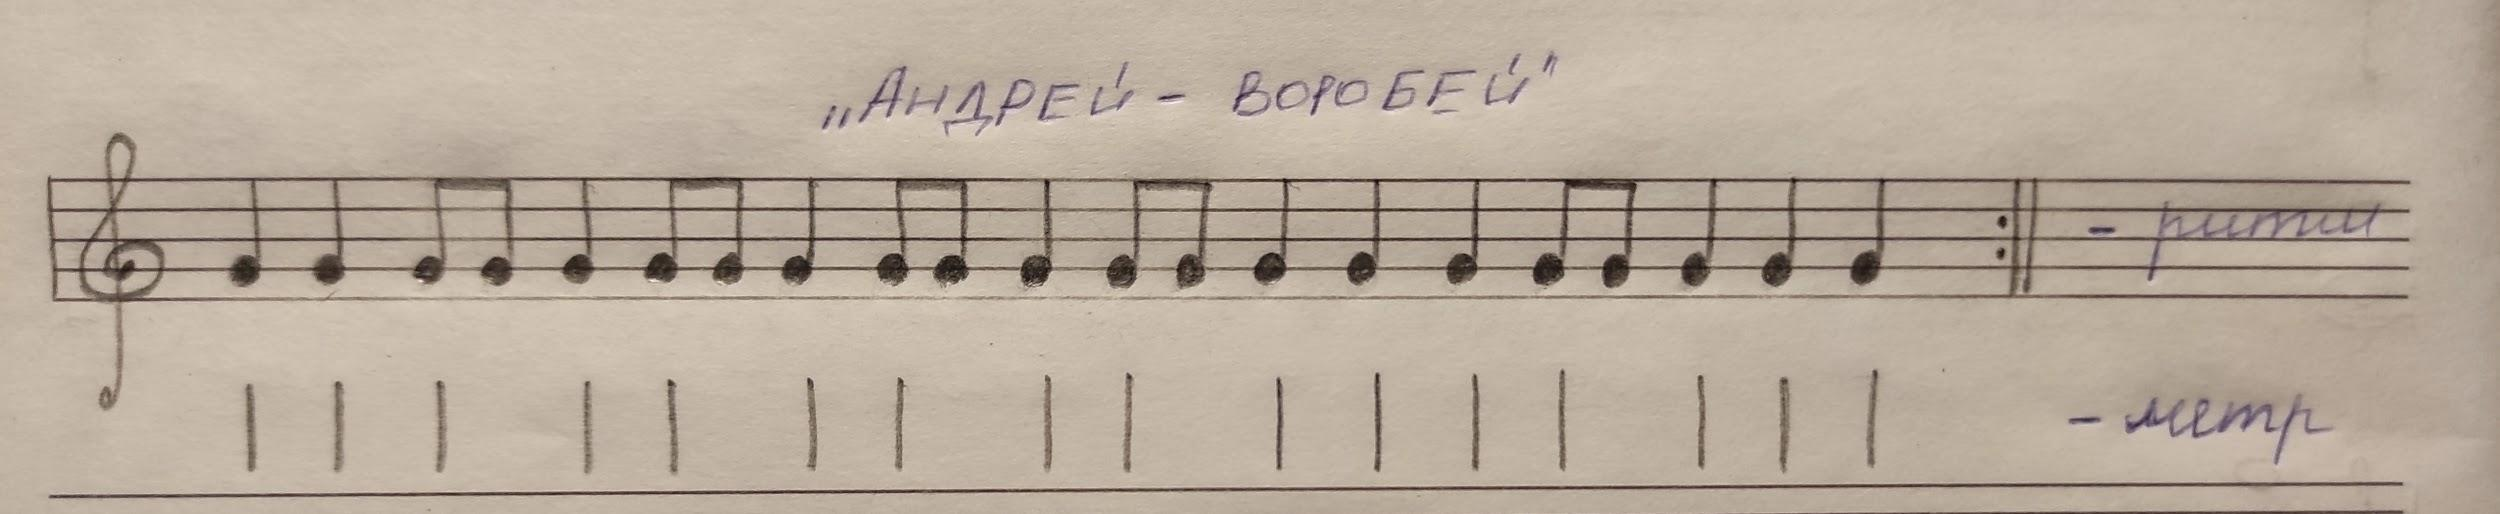 „АНДРЕЙ - ВОРОБЕЙ"
- ритм
- метр